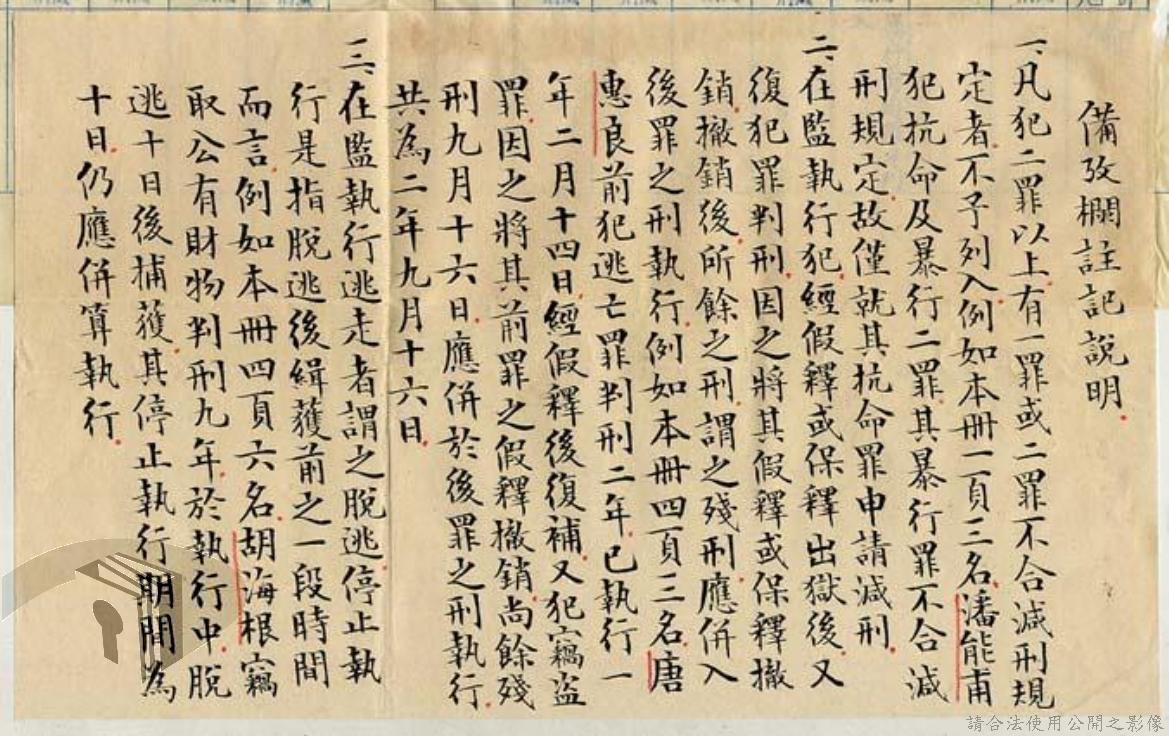 備攷欄註記說明.
一、凡犯二罪以上.有一罪或二罪不合減刑規
定者.不予列入.例如本冊一頁三名.潘能甫
犯抗命及暴行二罪.其暴行罪不合減
刑規定.故僅就其抗命罪申請減刑.
二、在監執行犯.經假釋或保釋出獄後.又
復犯罪判刑.因之將其假釋或保釋撤
銷.撤銷後.所餘之刑.謂之殘刑.應併入
後罪之刑執行.例如本冊四頁三名.唐
惠良前犯逃亡罪判刑二年.已執行一
年二月十四日.經假釋後復補.又犯竊盜
罪.因之將其前罪之假釋撤銷.尚餘殘
刑九月十六日.應併於後罪之刑執行.
共為二年九月十六日.
三、在監執行逃走者謂之脫逃.停止執
行是指脫逃後緝獲前之一段時間
而言.例如本冊四頁六名.胡海根竊
取公有財物判刑九年.於執行中.脫
逃十日後捕獲.其停止執行期間為
十日.仍應併算執行.
請合法使用公開之影像